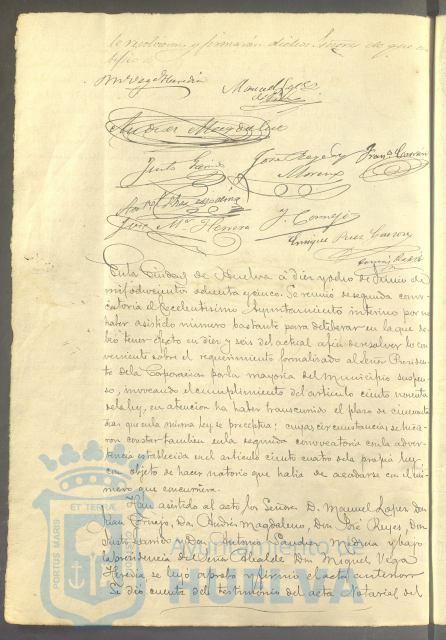 se resolvieron y firmarán dichos Señores de que cer
tifico =
M. Vega Heredia
Manuel López
Andrés Magdaleno
Justo Garrido José Reyes y Moreno Franco
José Ma. Herrera J. Cornejo
Enrique Ruiz
En la Ciudad de Huelva á diez y ocho de Junio de
mil ochocientos ochenta y cinco. Se reunió de segunda convo
catoria el Excelentísimo Ayuntamiento interino por no
haber asistido número bastante para deliberar en la que de
bió tener efecto en diez y seis del actual afin de resolver lo con
veniente sobre el requerimiento formalizado al Señor Presiden
te de la Corporacion por la mayoría del Municipio suspen
so, invocando el cumplimiento del artículo ciento noventa
de la ley, en atencion á haber transcurrido el plazo de cincuenta
dias que en la misma ley se preceptúa; cuyas circunstancias se hicie
ron constar tambien en la segunda convocatoria con la adver
tencia establecida en el artículo ciento cuatro de la propia ley
con objeto de hacer notorio que había de acordarse con el nú
mero que concurriera.
Han asistido al acto los Señores D. Manuel Lopez, Don
Juan Cornejo, Don Andrés Magdaleno, Don José Reyes, Don
Justo Garrido y Don Antonio Medina y bajo
la presidencia del Señor Alcalde Don Miguel Vega
Heredia, se leyó aprobó y firmó el acta anterior
Se dió cuenta del testimonio del acta Notarial del
PORTUS MARIS
ET TERRÆ
Ayuntamiento de
HUELVA